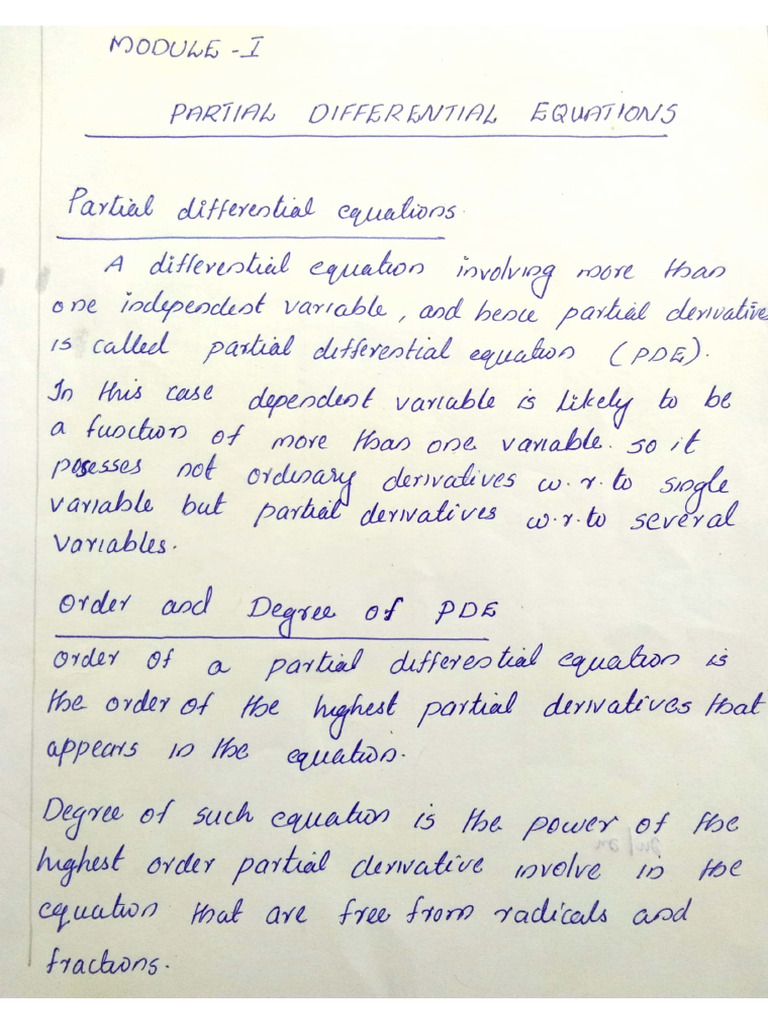 MODULE - I
PARTIAL DIFFERENTIAL EQUATIONS
Partial differential equations.
A differential equation involving more than
one independent variable, and hence partial derivatives
is called partial differential equation (PDE).
In this case dependent variable is likely to be
a function of more than one variable. so it
posesses not ordinary derivatives w.r.to single
variable but partial derivatives w.r.to several
variables.
Order and Degree of PDE
Order of a partial differential equation is
the order of the highest partial derivatives that
appears in the equation.
Degree of such equation is the power of the
highest order partial derivative involve in the
equation that are free from radicals and
fractions.